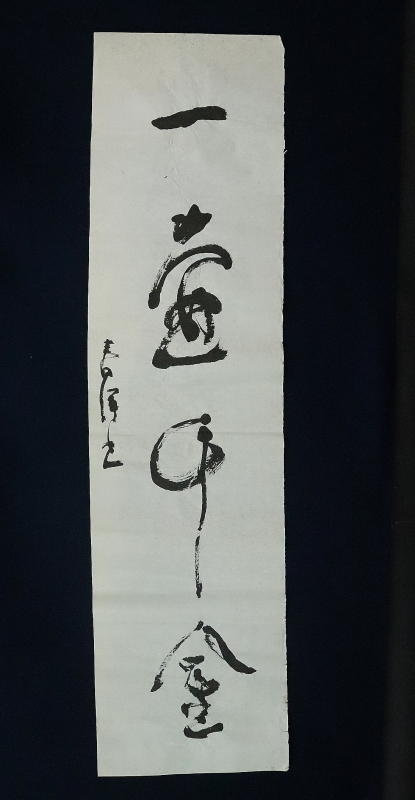 一壺千金
書